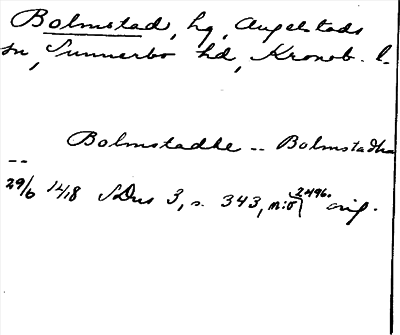 Bolmstad, hg, Angelstads
sn, Sunnerbo hd, Kronob. l.
Bolmstadhe -- Bolmstadha
--
29/6 1418 SDns 3, s. 343, n:o 2496. orig.